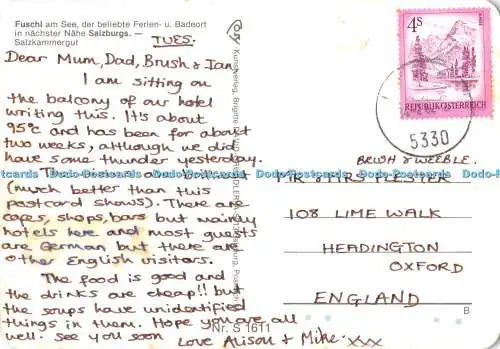 Fuschl am See, der beliebte Ferien- u. Badeort
in nächster Nähe Salzburgs. —
Salzkammergut
TUES.
Dear Mum, Dad, Brush & Ian,
I am sitting on
the balcony of our hotel
writing this. It's about
95°C and has been for about
two weeks, although we did
have some thunder yesterday.
The views are brilliant
(much better than this
postcard shows). There are
cafes, shops, bars but mainly
hotels here and most guests
are German but there are
other English visitors.
The food is good and
the drinks are cheap!! but
the soups have unidentified
things in them. Hope you are all
well. See you soon Love Alison & Mike. xxx
Nr. S 1611
4S
REPUBLIK ÖSTERREICH
5330
BRUSH & WEEBLE.
MR & MRS PLESTER
108 LIME WALK
HEADINGTON
OXFORD
ENGLAND
B
Dodo-Postcards